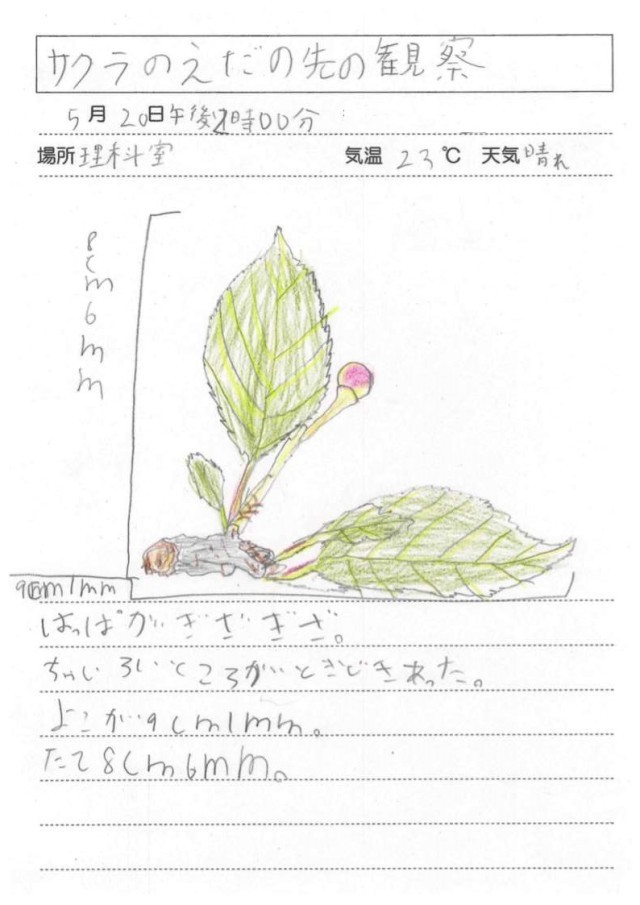 サクラのえだの先の観察
5月20日午後2時00分
場所理科室 気温 23℃ 天気晴れ
8cm6mm
9cm1mm
はっぱがぎざぎざ。
ちゃいろいところがときどきあった。
よこが9cm1mm。
たて8cm6mm。